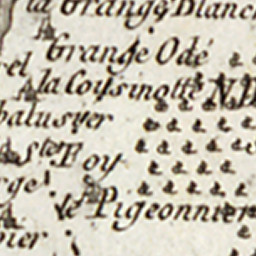 la Grange Blanc
Grange Odé
rel
la Coysinotte N.D
balusyer
Ste Foy
rge
le Pigeonnier
ier